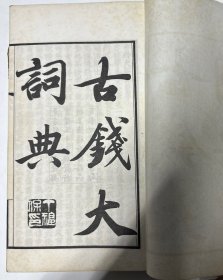 古錢大
詞典
丁福
保署